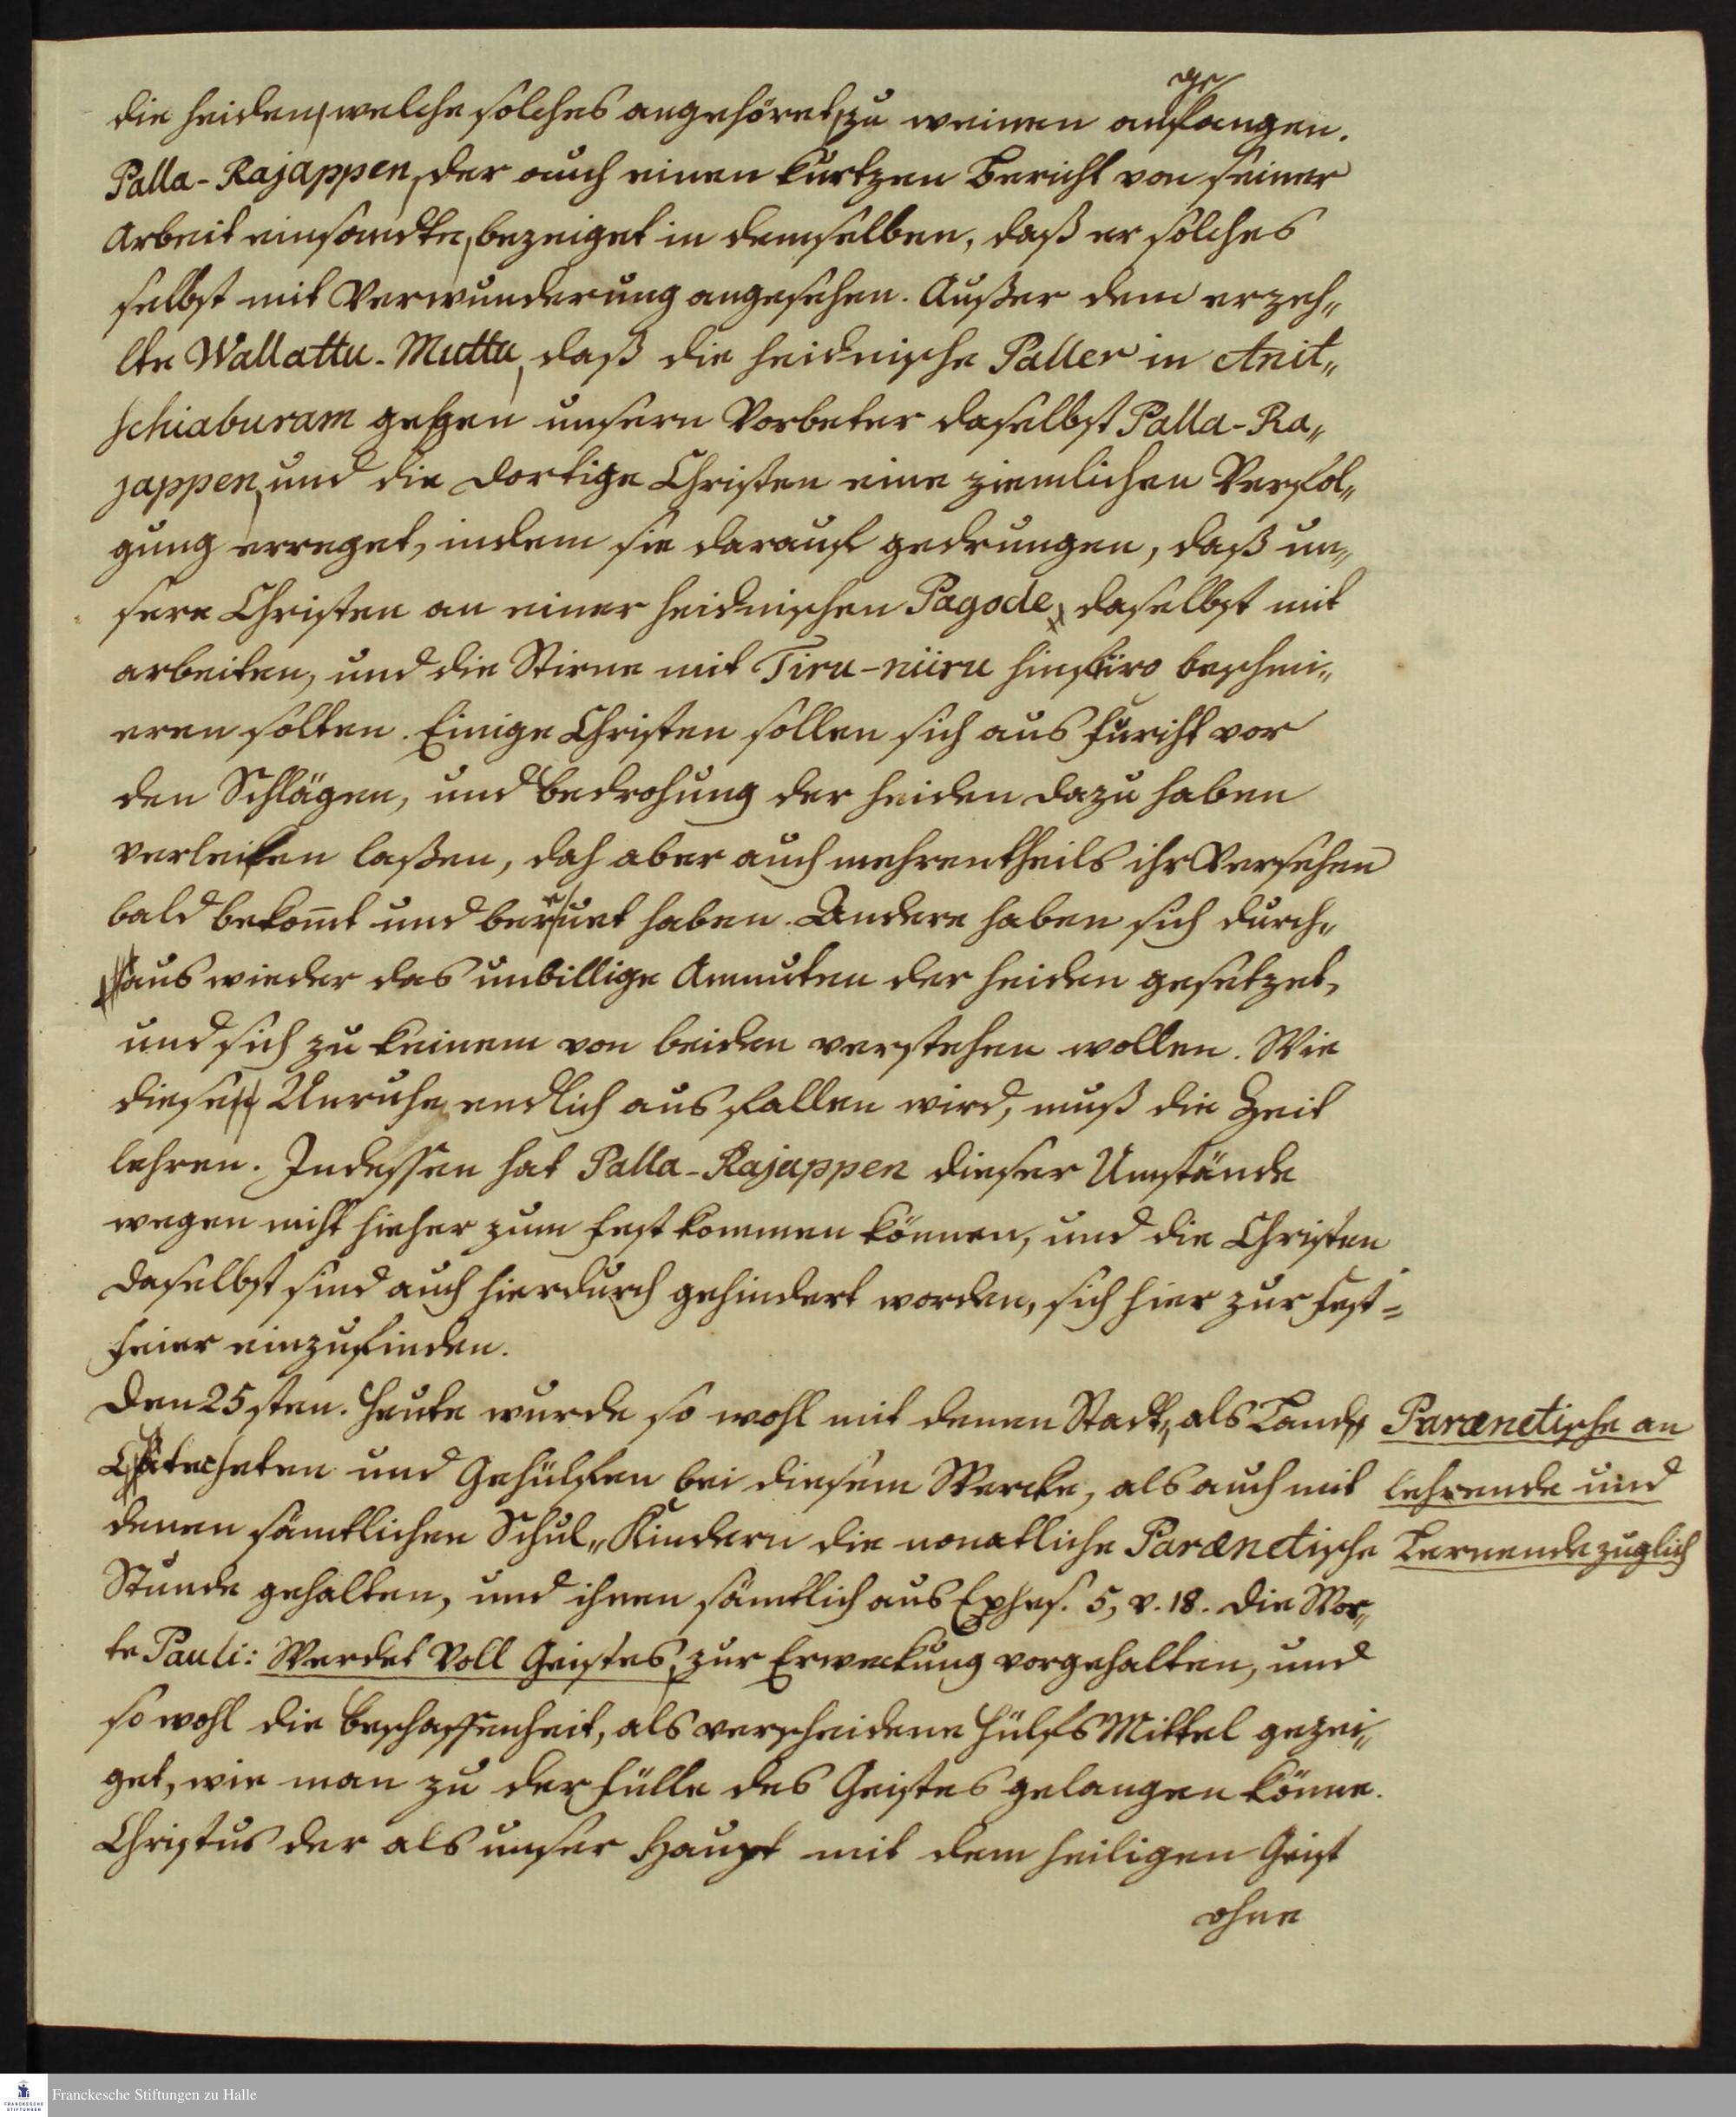 die Heiden, welche solches angehöret, zu weinen angefangen.
Palla-Rajappen, der auch einen kurtzen Bericht von seiner
Arbeit einsandte, bezeiget in demselben, daß er solches
selbst mit Verwunderung angesehen. Außer dem erzeh„
lte Wallattu-Muttu, daß die heidnische Paller in Anit„
schiaburam gegen unsern Vorbeter daselbst Palla-Ra„
jappen, und die dortige Christen eine ziemlichen Verfol„
gung erreget, indem sie darauf gedrungen, daß un„
sere Christen an einer heidnischen Pagode, daselbst mit
arbeiten, und die Stirne mit Tiru-nüru hinfüro beschmi„
eren solten. Einige Christen sollen sich aus Furcht vor
den Schlägen, und Bedrohung der Heiden dazu haben
verleiten laßen, dah aber auch mehrentheils ihr Versehen
bald bekomt und bereuet haben. Andere haben sich durch„
aus wieder das unbillige Anmuten der Heiden gesetzet,
und sich zu keinem von beiden verstehen wollen. Wie
diese Unruhe endlich ausfallen wird, muß die Zeit
lehren. Indessen hat Palla-Rajappen dieser Umstände
wegen nicht hieher zum Fest kommen können, und die Christen
daselbst sind auch hierdurch gehindert worden, sich hier zur Fest=
Feier einzufinden.
Den 25sten. Heute wurde so wohl mit denen Stadt„ als Land„
Catecheten und Gehülfen bei diesem Wercke, als auch mit
denen sämtlichen Schul„Kindern die monatliche Parænetische
Stunde gehalten, und ihnen sämtlich aus Ephes. 5, v. 18. die Wor„
te Pauli: Werdet Voll Geistes, zur Erweckung vorgehalten, und
so wohl die Beschaffenheit, als verscheidene Hülfs Mittel gezei„
get, wie man zu der Fülle des Geistes gelangen könne.
Christus der als unser Haupt mit dem heiligen Geist
ohne
Parænetische an
lehrende und
Lernende zuglich
Franckesche Stiftungen zu Halle
FRANCKESCHE
STIFTUNGEN